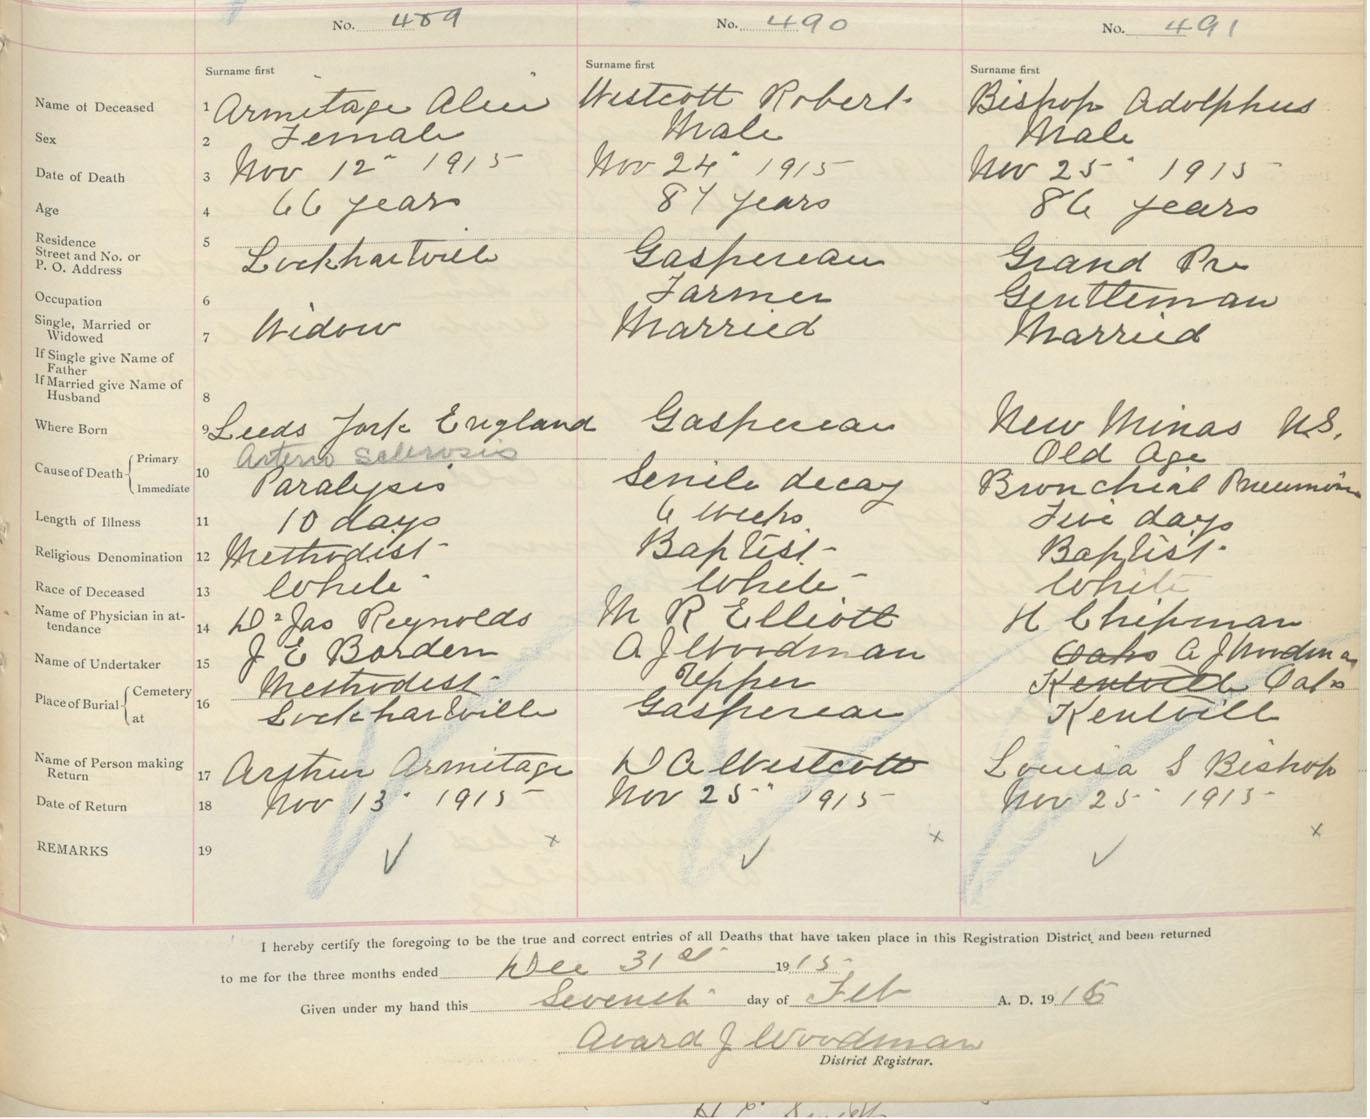 No. 489 No. 490 No. 491
Surname first Surname first Surname first
Name of Deceased 1 Armitage Alice Westcott Robert Bishop Adolphus
Sex 2 Female Male Male
Date of Death 3 Nov 12" 1915 Nov 24" 1915 Nov 25" 1915
Age 4 66 years 87 years 86 years
Residence
Street and No. or
P. O. Address 5 Lockhartville Gaspereau Grand Pre
Occupation 6 Farmer Gentleman
Single, Married or
Widowed 7 Widow Married Married
If Single give Name of
Father
If Married give Name of
Husband 8
Where Born 9 Leeds York England Gaspereau New Minas N.S.
Cause of Death Primary 10 Arterio Sclerosis Old Age
Immediate Paralysis Senile decay Bronchial Pneumonia
Length of Illness 11 10 days 6 weeks Five days
Religious Denomination 12 Methodist Baptist Baptist
Race of Deceased 13 White White White
Name of Physician in at-
tendance 14 Dr Jas Reynolds M R Elliott H Chipman
Name of Undertaker 15 J E Borden A J Woodman Oaks A J Woodman
Place of Burial Cemetery 16 Methodist Upper Kentville Oaks
at Lockhartville Gaspereau Kentvill
Name of Person making
Return 17 Arthur Armitage D A Westcott Louisa S Bishop
Date of Return 18 Nov 13" 1915 Nov 25" 1915 Nov 25" 1915
REMARKS 19 ✓ x ✓ x ✓ x
I hereby certify the foregoing to be the true and correct entries of all Deaths that have taken place in this Registration District, and been returned
to me for the three months ended Dec 31st 1915
Given under my hand this Seventh day of Feb A. D. 19 16
Avard J Woodman
District Registrar.